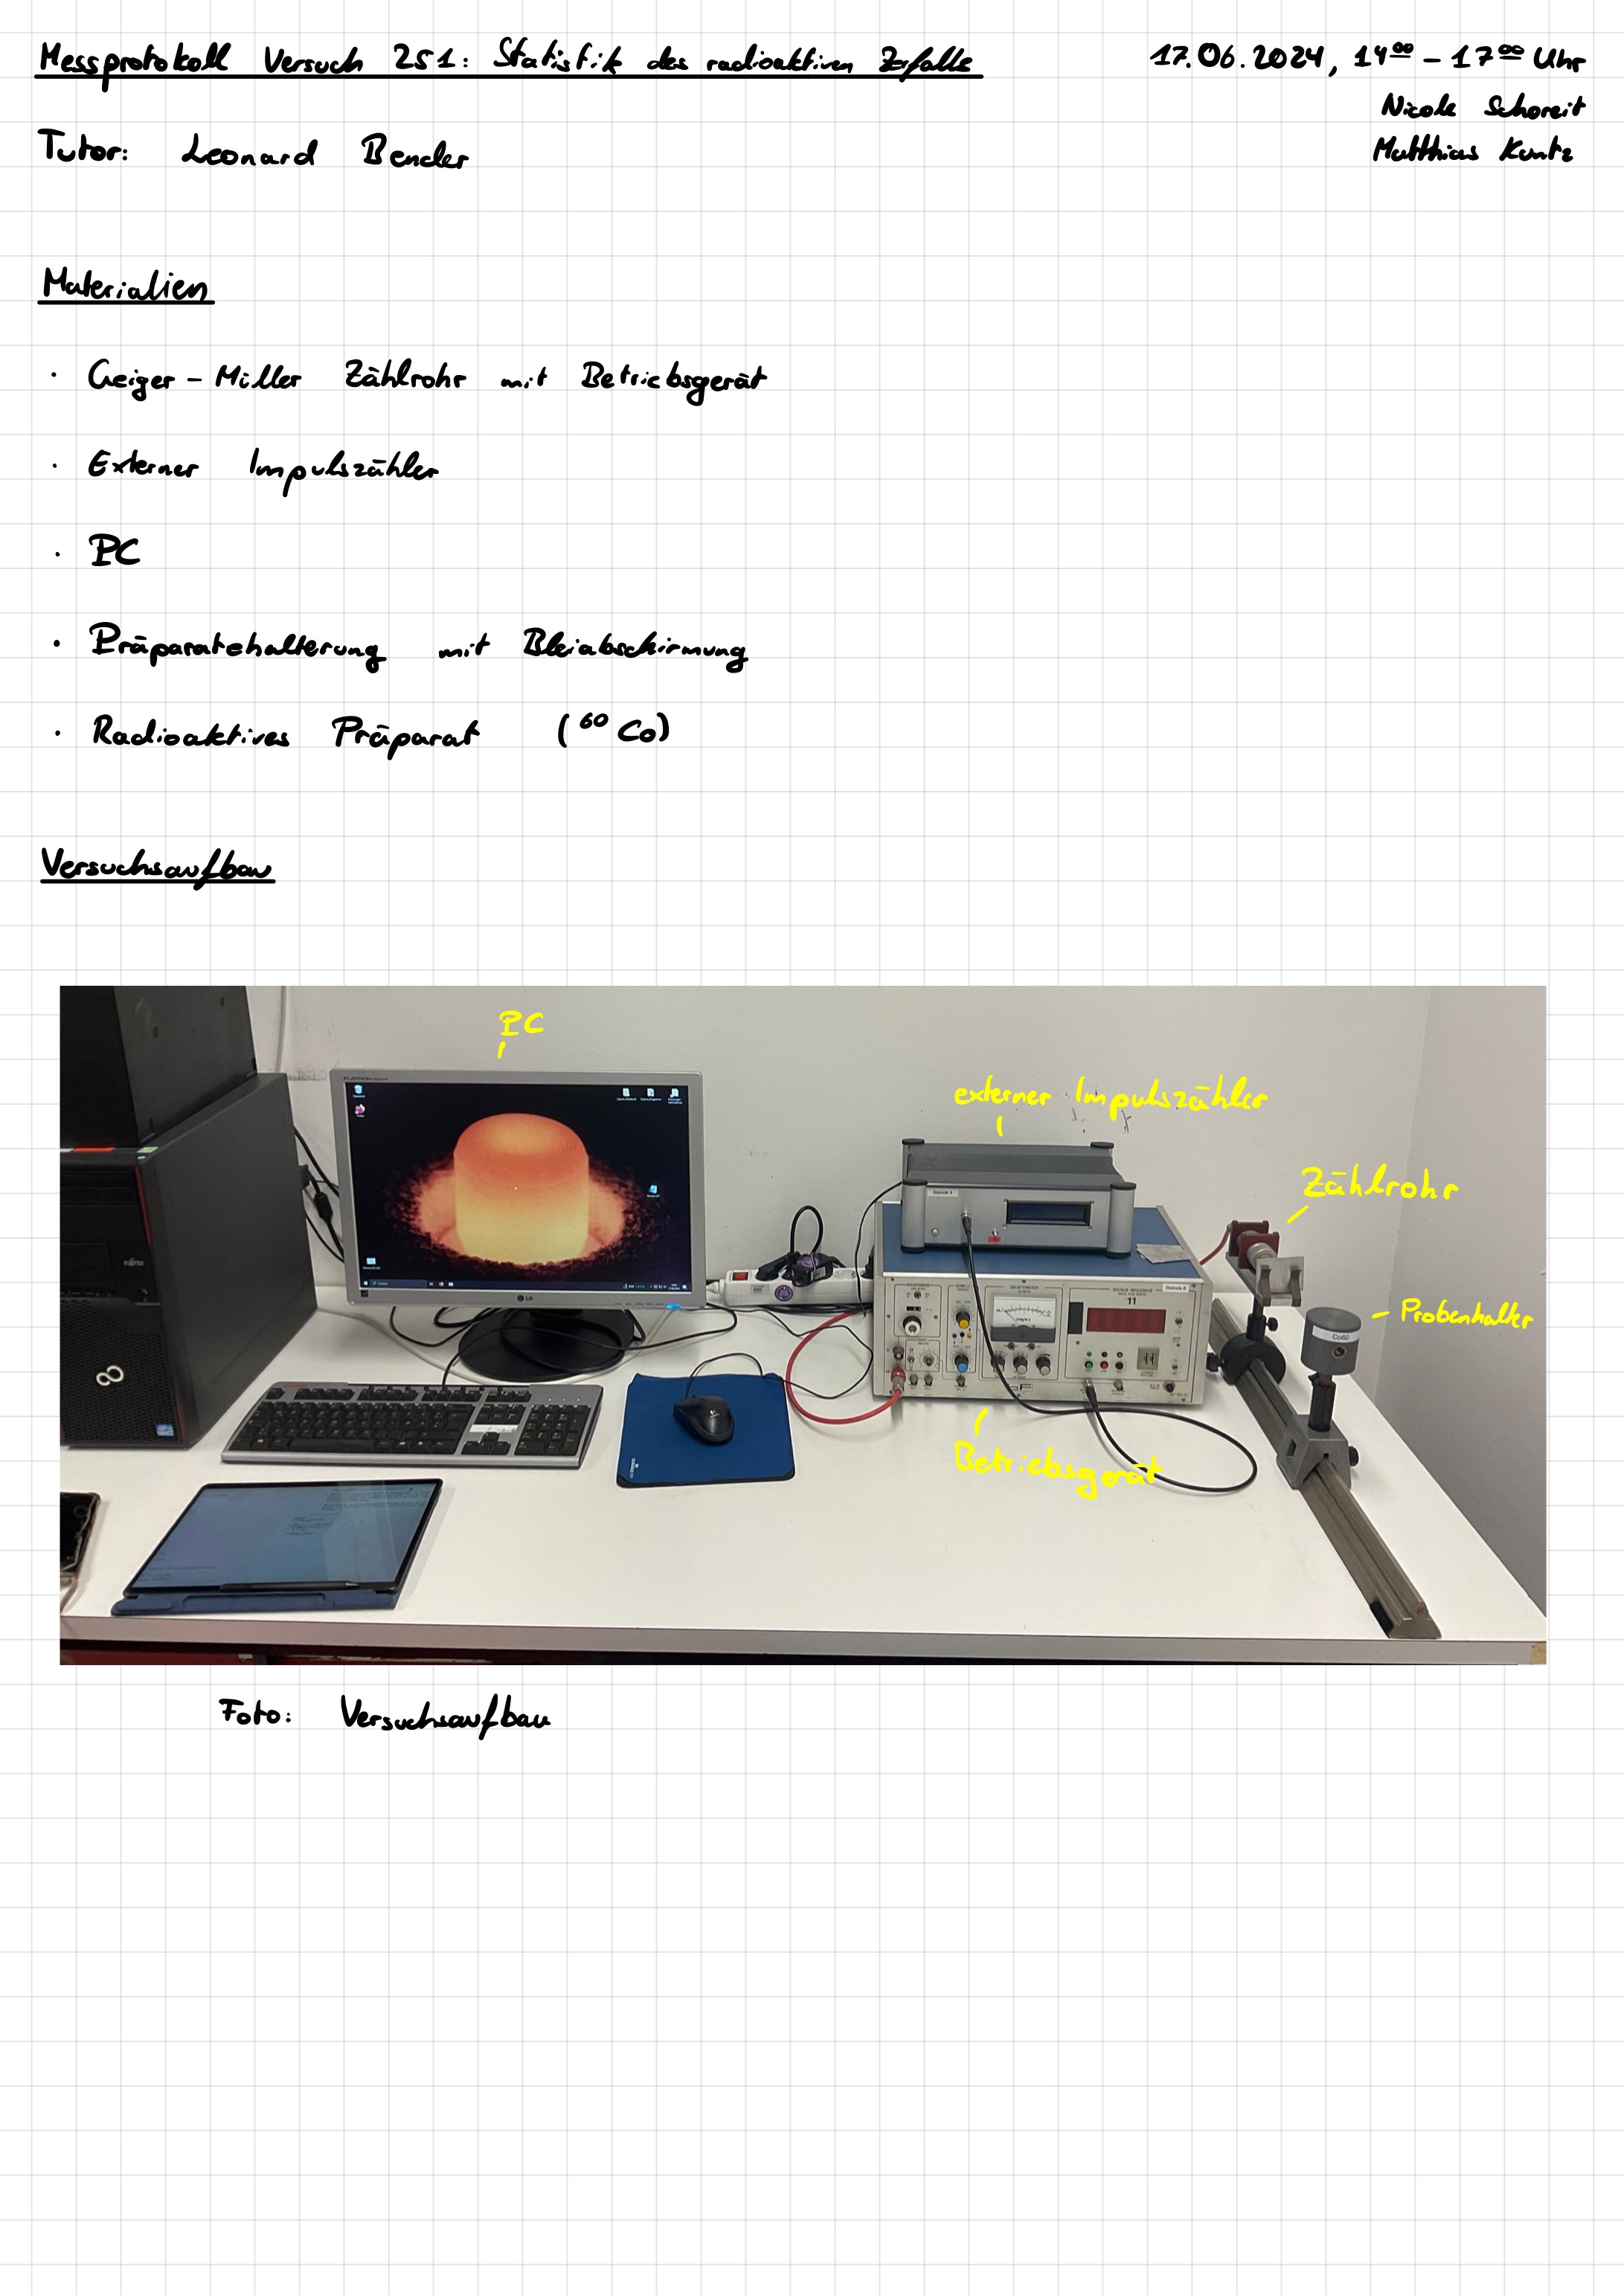 Messprotokoll Versuch 251: Statistik des radioaktiven Zerfalls
17.06.2024, 14⁰⁰ – 17⁰⁰ Uhr
Nicole Schoreit
Matthias Kuntz
Tutor: Leonard Bender
Materialien
· Geiger – Müller Zählrohr mit Betriebsgerät
· Externer Impulszähler
· PC
· Präparatehalterung mit Bleiabschirmung
· Radioaktives Präparat (⁶⁰Co)
Versuchsaufbau
PC
externer Impulszähler
Zählrohr
Probenhalter
Co60
11
LG
Betriebsgerät
Foto: Versuchsaufbau